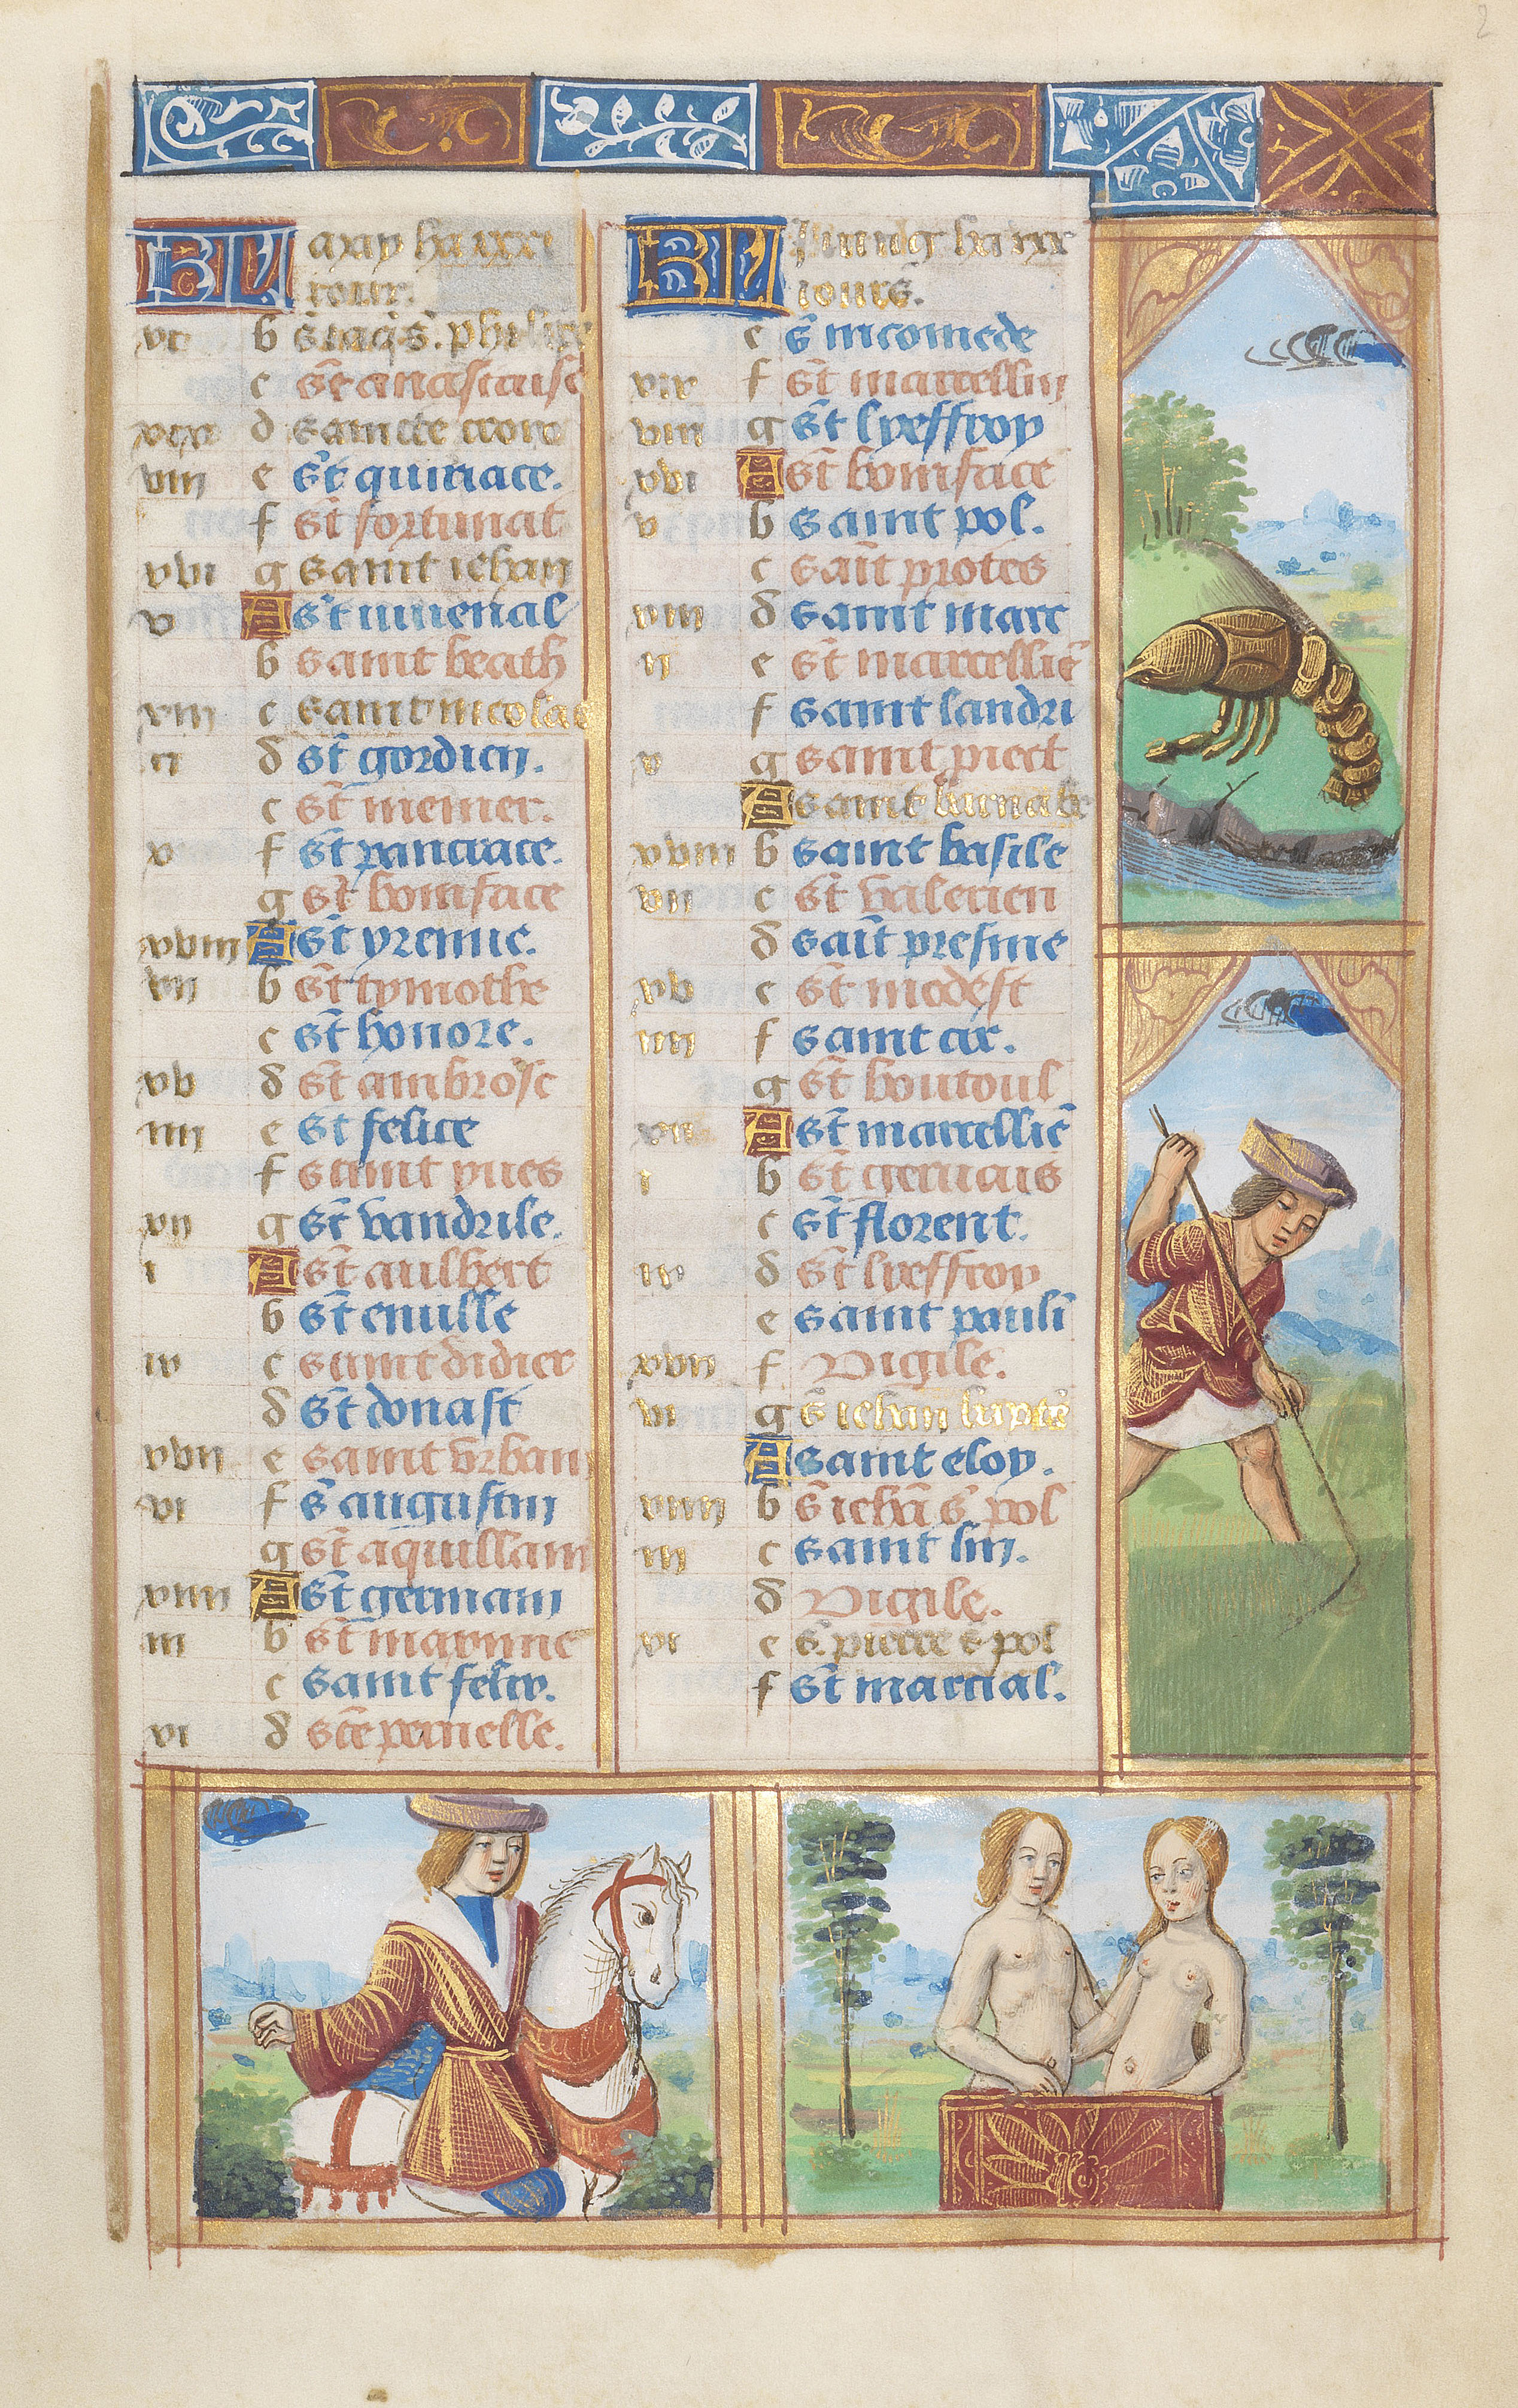 KL may ha xxxi
iour.
vi b s iaqs. philipe
c st anastaise
xix d saincte croix
viii e st quiriace.
f st fortunat
xvi g saint iehan
v A st iuuenal
b saint beath
xiii c saint nicolas
ii d st gordien.
e st memer.
x f st pancrace.
g st boniface
xviii A st yremie.
vii b st tymothe
c st honore.
xv d st ambrose
iiii e st felice
f saint yues
xii g st vandrile.
i A st aulbert
b st emille
ix c saint didier
d st donast
xvii e saint vrban
vi f s augustin
g st aquillam
xiiii A st germain
iii b st marinne
c saint felix.
xi d ste pernelle.
KL iuing ha xxx
iours.
e s nicomede
xix f st marcellin
viii g st lyeffroy
xvi A st boniface
v b saint pol.
c sait protes
xiii d saint marc
ii e st marcellie
f saint landri
x g saint piect
A saint barnabe
xviii b saint basile
vii c st valerien
d sait presme
xv e st modest
iiii f saint cir.
g st boutoul
xii A st marcellie
i b st geruais
c st florent.
ix d st lyeffroy
e saint pauli
xvii f Vigile.
vi g s iehan bapte
A saint eloy.
xiiii b s ieha s pol
iii c saint lin.
d Vigile.
xi e s. pierre s pol
f st marcial.
2